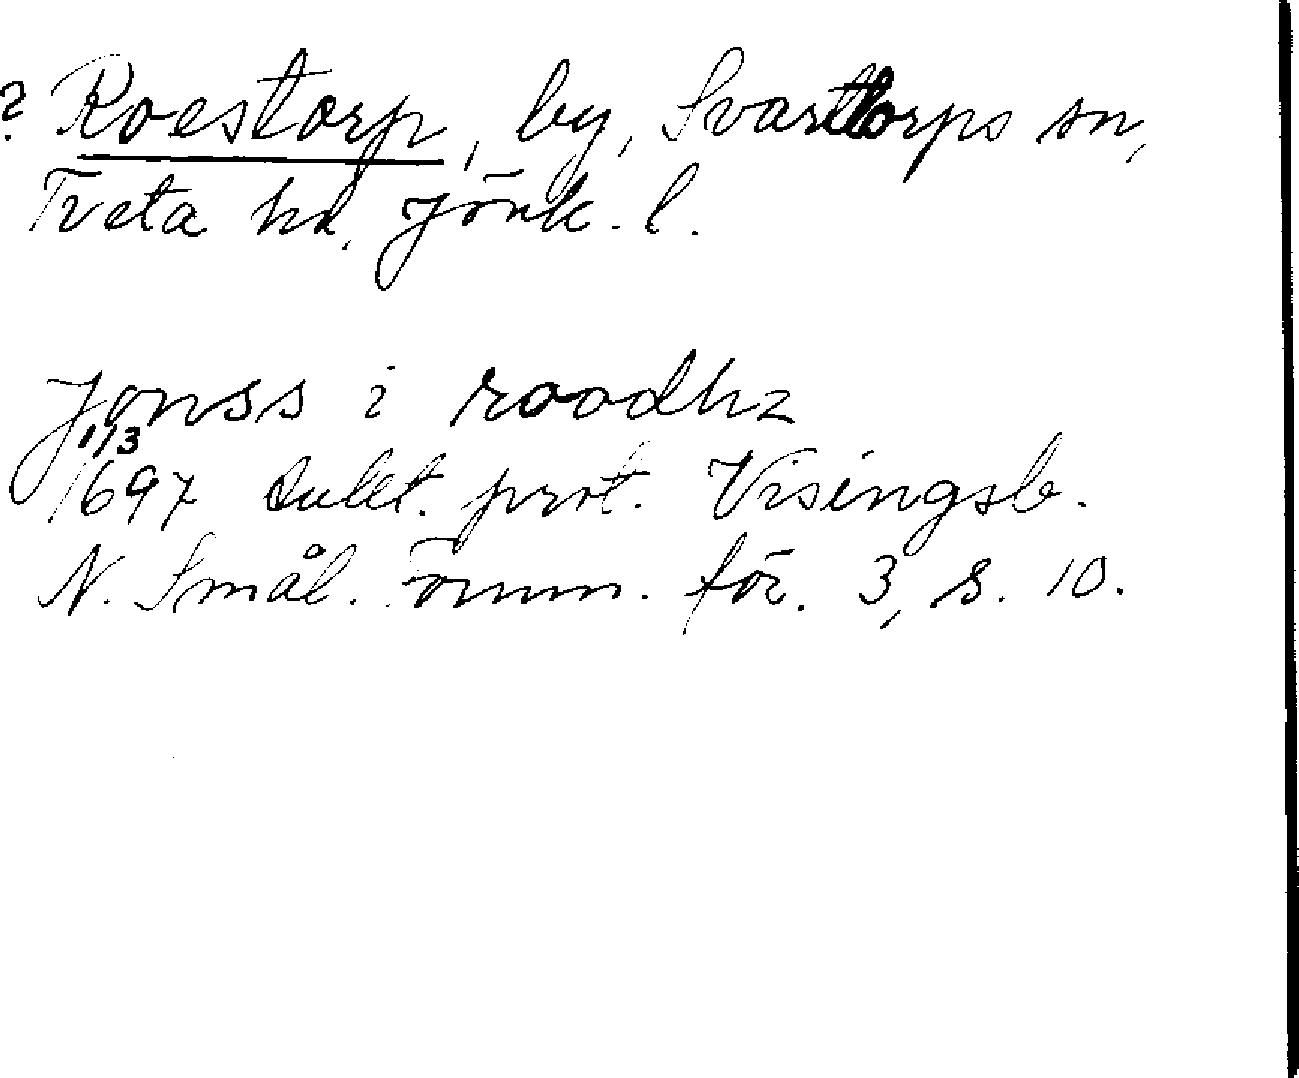 ? Roestorp, by, Svarttorps sn,
Tveta hd. Jönk. l.
Jonss i roodhz
1/3
1697 Sulet. prot. Visingsb.
N. Smål. fornm. för. 3, s. 10.